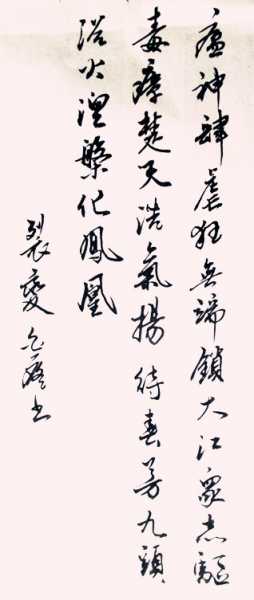 瘟神肆虐狂無端鎖大江眾志驅
毒瘴楚天浩氣揚待春芳九頭
浴火涅槃化鳳凰
裂變書